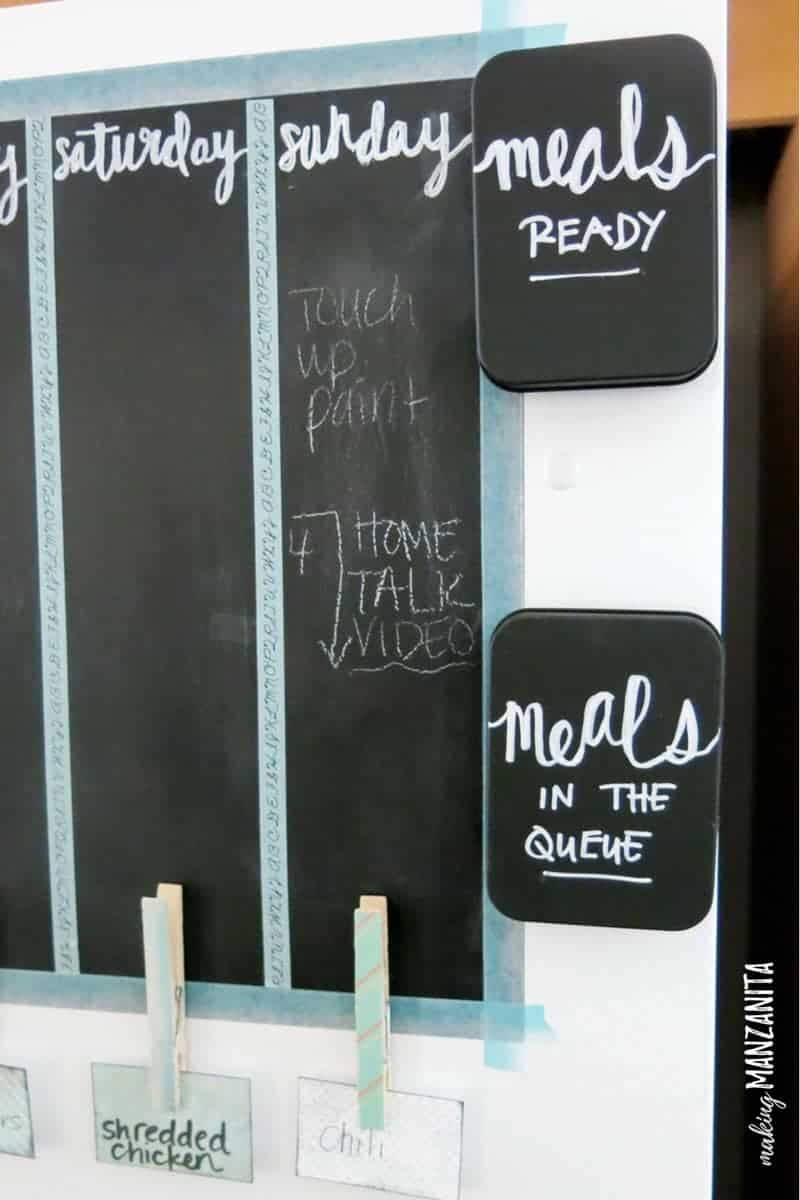 saturday
sunday
Touch
up
paint
4 HOME
TALK
VIDEO
meals
READY
meals
IN THE
QUEUE
shredded
chicken
Chili
making MANZANITA